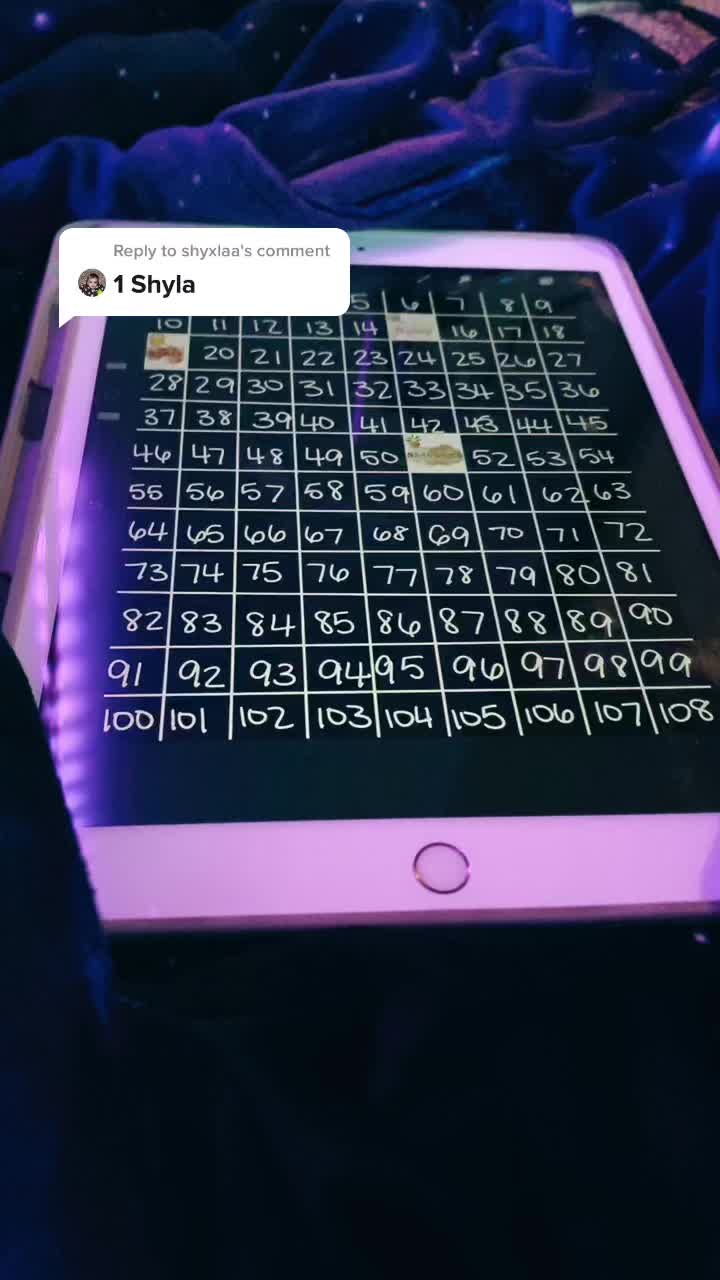 Reply to shyxlaa's comment
1 Shyla
5 6 7 8 9
10 11 12 13 14 16 17 18
20 21 22 23 24 25 26 27
28 29 30 31 32 33 34 35 36
37 38 39 40 41 42 43 44 45
46 47 48 49 50 52 53 54
55 56 57 58 59 60 61 62 63
64 65 66 67 68 69 70 71 72
73 74 75 76 77 78 79 80 81
82 83 84 85 86 87 88 89 90
91 92 93 94 95 96 97 98 99
100 101 102 103 104 105 106 107 108